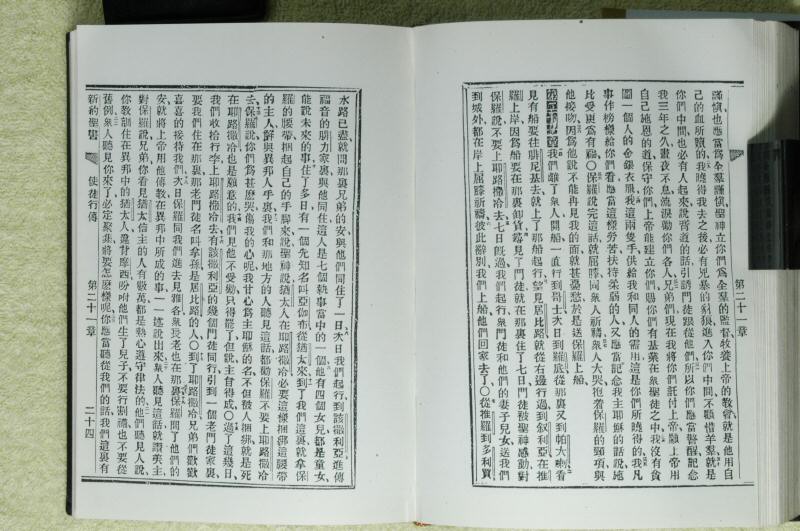 謹愼也應當爲全羣謹愼聖神立你們爲全羣的監督牧養上帝的敎會就是他用自
己的血所贖的我曉得我去之後必有兇暴的豺狼進入你們中間不顧惜羊羣就是
你們中間也必有人起來說背道的話引誘門徒跟從他們所以你們應當警醒記念
我三年之久晝夜不息流淚勸你們各人兄弟們現在我將你們託付上帝願上帝用
自己施恩的道保守你們上帝能建立你們賜你們有基業在衆聖徒之中我沒有貪
圖一個人的金銀衣服我這兩雙手供給我和同人的需用這是你們所曉得的我凡
事作榜樣給你們看應當這樣勞苦扶持柔弱的人又應當記念我主耶穌的話說施
比受更爲有福〇保羅說完這話就屈膝同衆人祈禱衆人大哭抱着保羅的頸項與
他接吻因爲他說不能再見我的面就甚憂愁於是送保羅上船
我們離了衆人開船一直行到哥士次日到羅底從那裏又到帕大喇看
見有船要往腓尼基去就上了那船起行望見居比路就從右邊行過到叙利亞在推
羅上岸因爲船要在那裏卸貨尋見了門徒就在那裏住了七日門徒被聖神感動對
保羅說不要上耶路撒冷去七日旣過我們起行衆門徒和他們的妻子兒女送我們
到城外都在岸上屈膝祈禱彼此辭別我們上船他們回家去了〇從推羅到多利買
第二十一章
水路已盡就問那裏兄弟的安與他們同住了一日次日我們起行到該撒利亞進傳
福音的腓力家裏與他同住這人是七個執事當中的一個他有四個女兒都是童女
能說未來的事住了多日有一個先知名叫亞伽布從猶太來到了我們這裏就拿保
羅的腰帶捆起自己的手脚來說聖神說猶太人在耶路撒冷必要這樣捆綁這腰帶
的主人解與異邦人手裏我們和那地方的人聽見這話都勸保羅不要上耶路撒冷
去保羅說你們爲甚麽哭傷我的心呢我甘心爲主耶穌的名不但被人捆綁就是死
在耶路撒冷也是願意的我們見他不受勸只得罷了但說主旨得成〇過了這幾日
我們收拾行李上耶路撒冷去有該撒利亞的幾個門徒同行引到一個老門徒家裏
要我們住在那裏那老門徒名叫拿孫是居比路的人〇到了耶路撒冷兄弟們歡歡
喜喜的接待我們次日保羅同我們進去見雅各衆長老也在那裏保羅問了他們的
安就將上帝用他傳敎在異邦中所成的事一一述說出來衆人聽見這話就讚美主
對保羅說兄弟你看見猶太信主的人有數萬都是熱心遵守律法的他們聽見人說
你敎訓住在異邦中的猶太人違背摩西吩咐他們生了兒子不要行割禮也不要從
舊例衆人聽見你來了必定聚集將要怎麽樣呢你應當聽從我們的話我們這裏有
新約聖書 使徒行傳 第二十一章 二十四